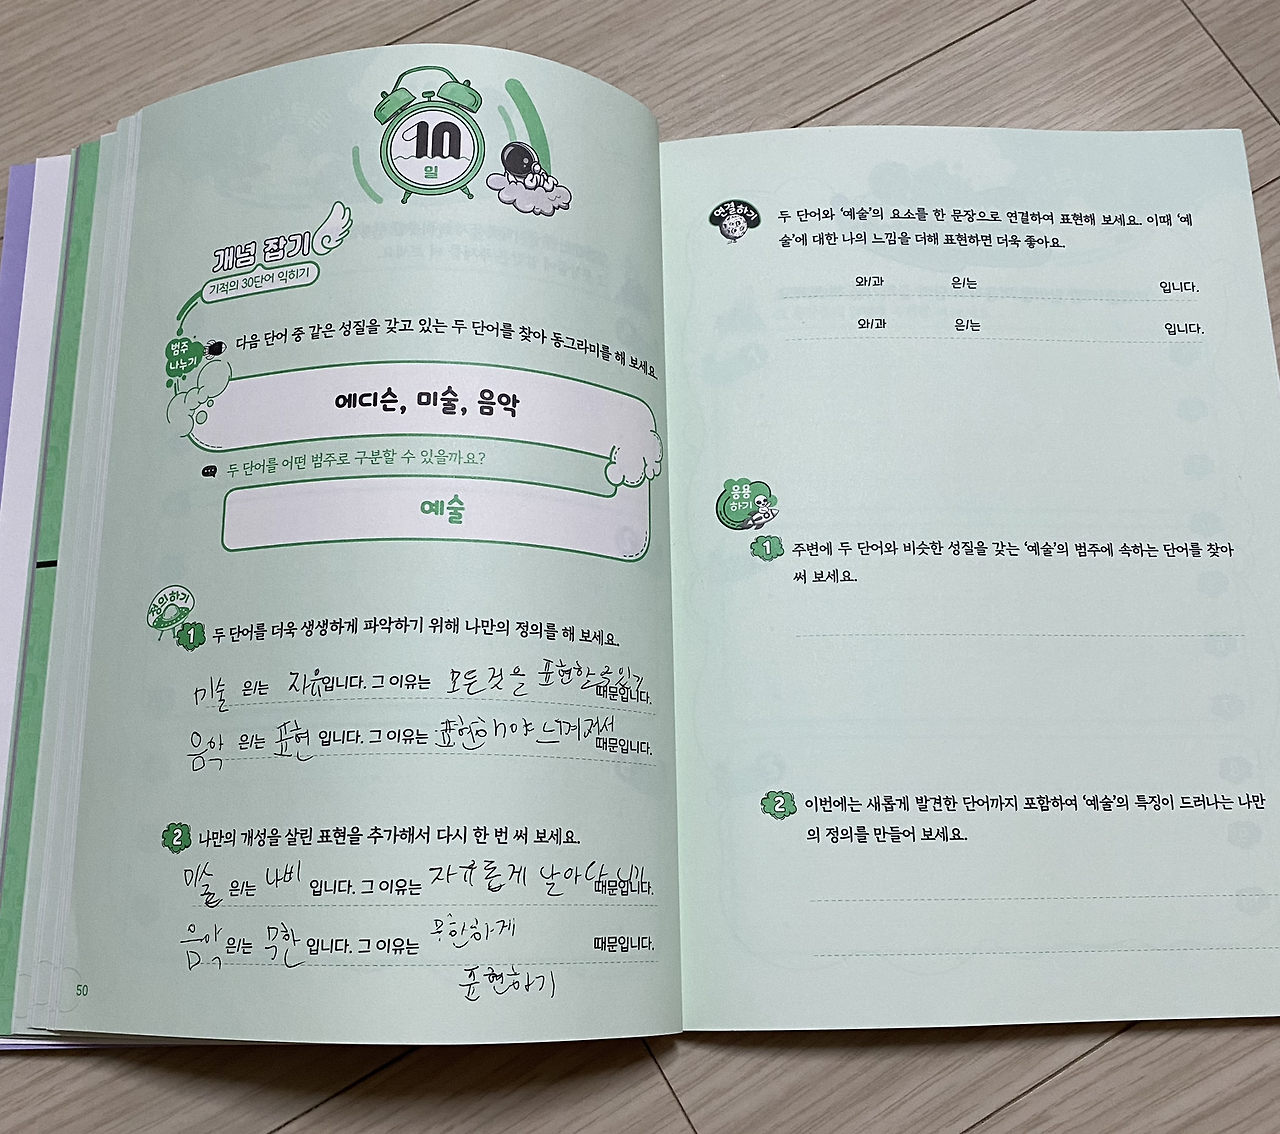 10
일
개념 잡기
기적의 30단어 익히기
범주
나누기
다음 단어 중 같은 성질을 갖고 있는 두 단어를 찾아 동그라미를 해 보세요.
에디슨, 미술, 음악
두 단어를 어떤 범주로 구분할 수 있을까요?
예술
정의하기
1 두 단어를 더욱 생생하게 파악하기 위해 나만의 정의를 해 보세요.
미술 은/는 자유입니다. 그 이유는 모든것을 표현할 수 있기 때문입니다.
음악 은/는 표현 입니다. 그 이유는 표현해야 느껴져서 때문입니다.
2 나만의 개성을 살린 표현을 추가해서 다시 한 번 써 보세요.
미술 은/는 나비 입니다. 그 이유는 자유롭게 날아다니기 때문입니다.
음악 은/는 무한 입니다. 그 이유는 무한하게 때문입니다.
표현하기
50
연결하기
두 단어와 ‘예술’의 요소를 한 문장으로 연결하여 표현해 보세요. 이때 ‘예
술’에 대한 나의 느낌을 더해 표현하면 더욱 좋아요.
와/과 은/는 입니다.
와/과 은/는 입니다.
응용
하기
1 주변에 두 단어와 비슷한 성질을 갖는 ‘예술’의 범주에 속하는 단어를 찾아
써 보세요.
2 이번에는 새롭게 발견한 단어까지 포함하여 ‘예술’의 특징이 드러나는 나만
의 정의를 만들어 보세요.